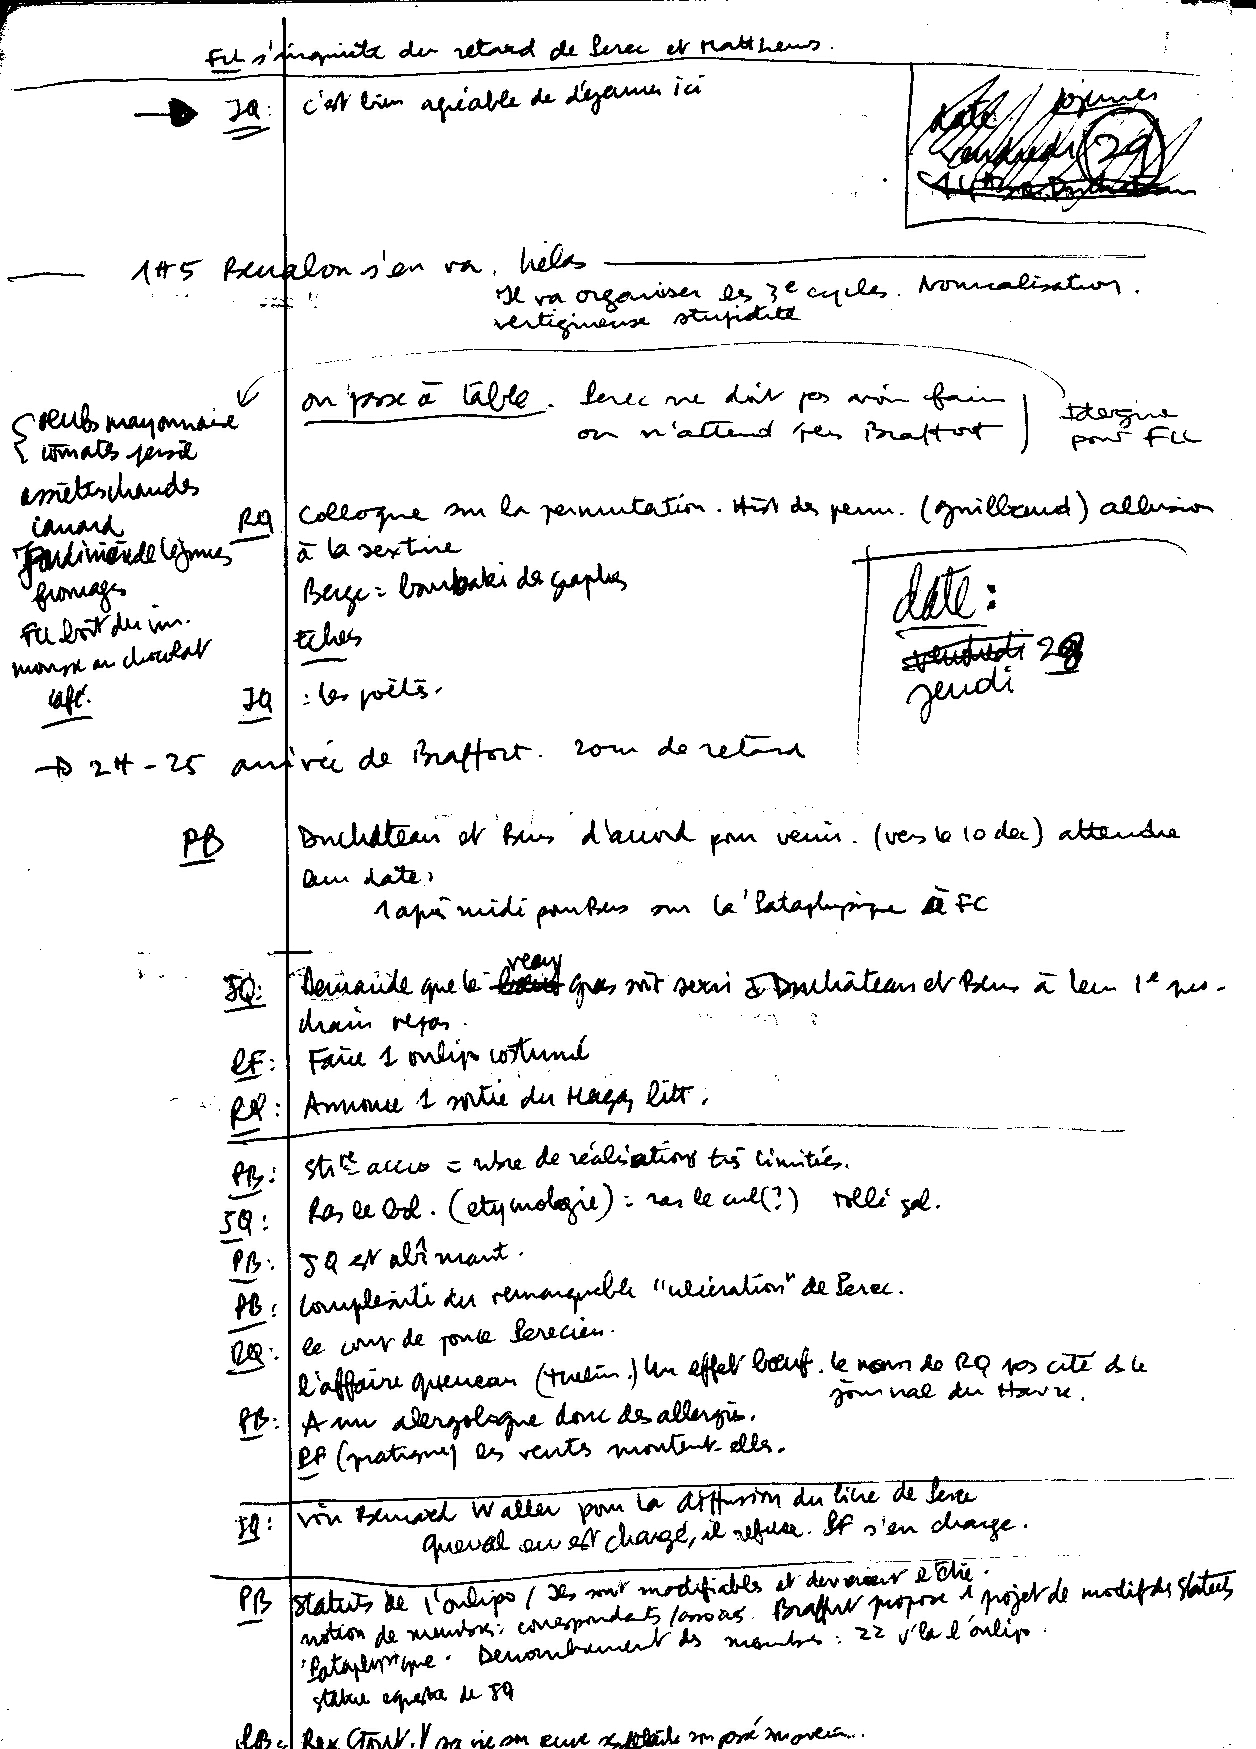 FLL s'inquiète du retard de Perec et Matthews.
JQ: c'est bien agréable de déjeuner ici
date
vendredi 29
1H5 Benabou s'en va. hélas
Il va organiser les 3e cycles. Normalisation.
vertigineuse stupidité
on passe à table. Perec ne doit pas avoir faim
on n'attend pas Braffort
pour FLL
oeufs mayonnaise
tomates persil
assiettes chaudes
canard
jardinière de légumes
fromages
FLL boit du vin.
mousse au chocolat
café.
RQ Colloque sur la permutation. Hist des perm. (Guilbaud) allusion
à la sextine
Berge = bourbaki des graphes
échecs
date:
vendredi 28
jeudi
JQ : les poètes.
→ 2H-25 arrivée de Braffort. 20m de retard
PB Duchateau et Bens d'accord pour venir. (vers le 10 dec) attendre
date
1 après midi pour Bens sur la 'Pataphysique à FC
JQ: Demande que le veau gras soit servi à Duchâteau et Bens à leur 1e pro-
chain repas.
PF: Faire 1 oulipo costumé
RQ: Annonce 1 sortie du Magaz litt.
PB: = nbre de réalisations très limitées.
JQ: Ras le bol. (etymologie) = ras le cul(?) rollé gol.
PB: JQ est abîmant.
PB: Complexité du remarquable "ulcération" de Perec.
RQ: le coup de pouce Perecien.
l'affaire queneau un effet boeuf. le nom de RQ pas cité ds le
journal du Havre.
PB: A un alergologue donc des allergies.
PF (pratique) les ventes montent-elles.
JQ: voir Bernard Waller pour la diffusion du livre de Perec
Queval en est chargé, il refuse. PF s'en charge.
PB Statuts de l'oulipo / Ils sont modifiables et devraient l'être.
notion de membres: correspondants/assoc. Braffort propose 1 projet de modif des statuts
'Pataphysique. Denombrement des membres: 22 v'la l'oulipo.
statue equestre de JQ
PB: sa vie son